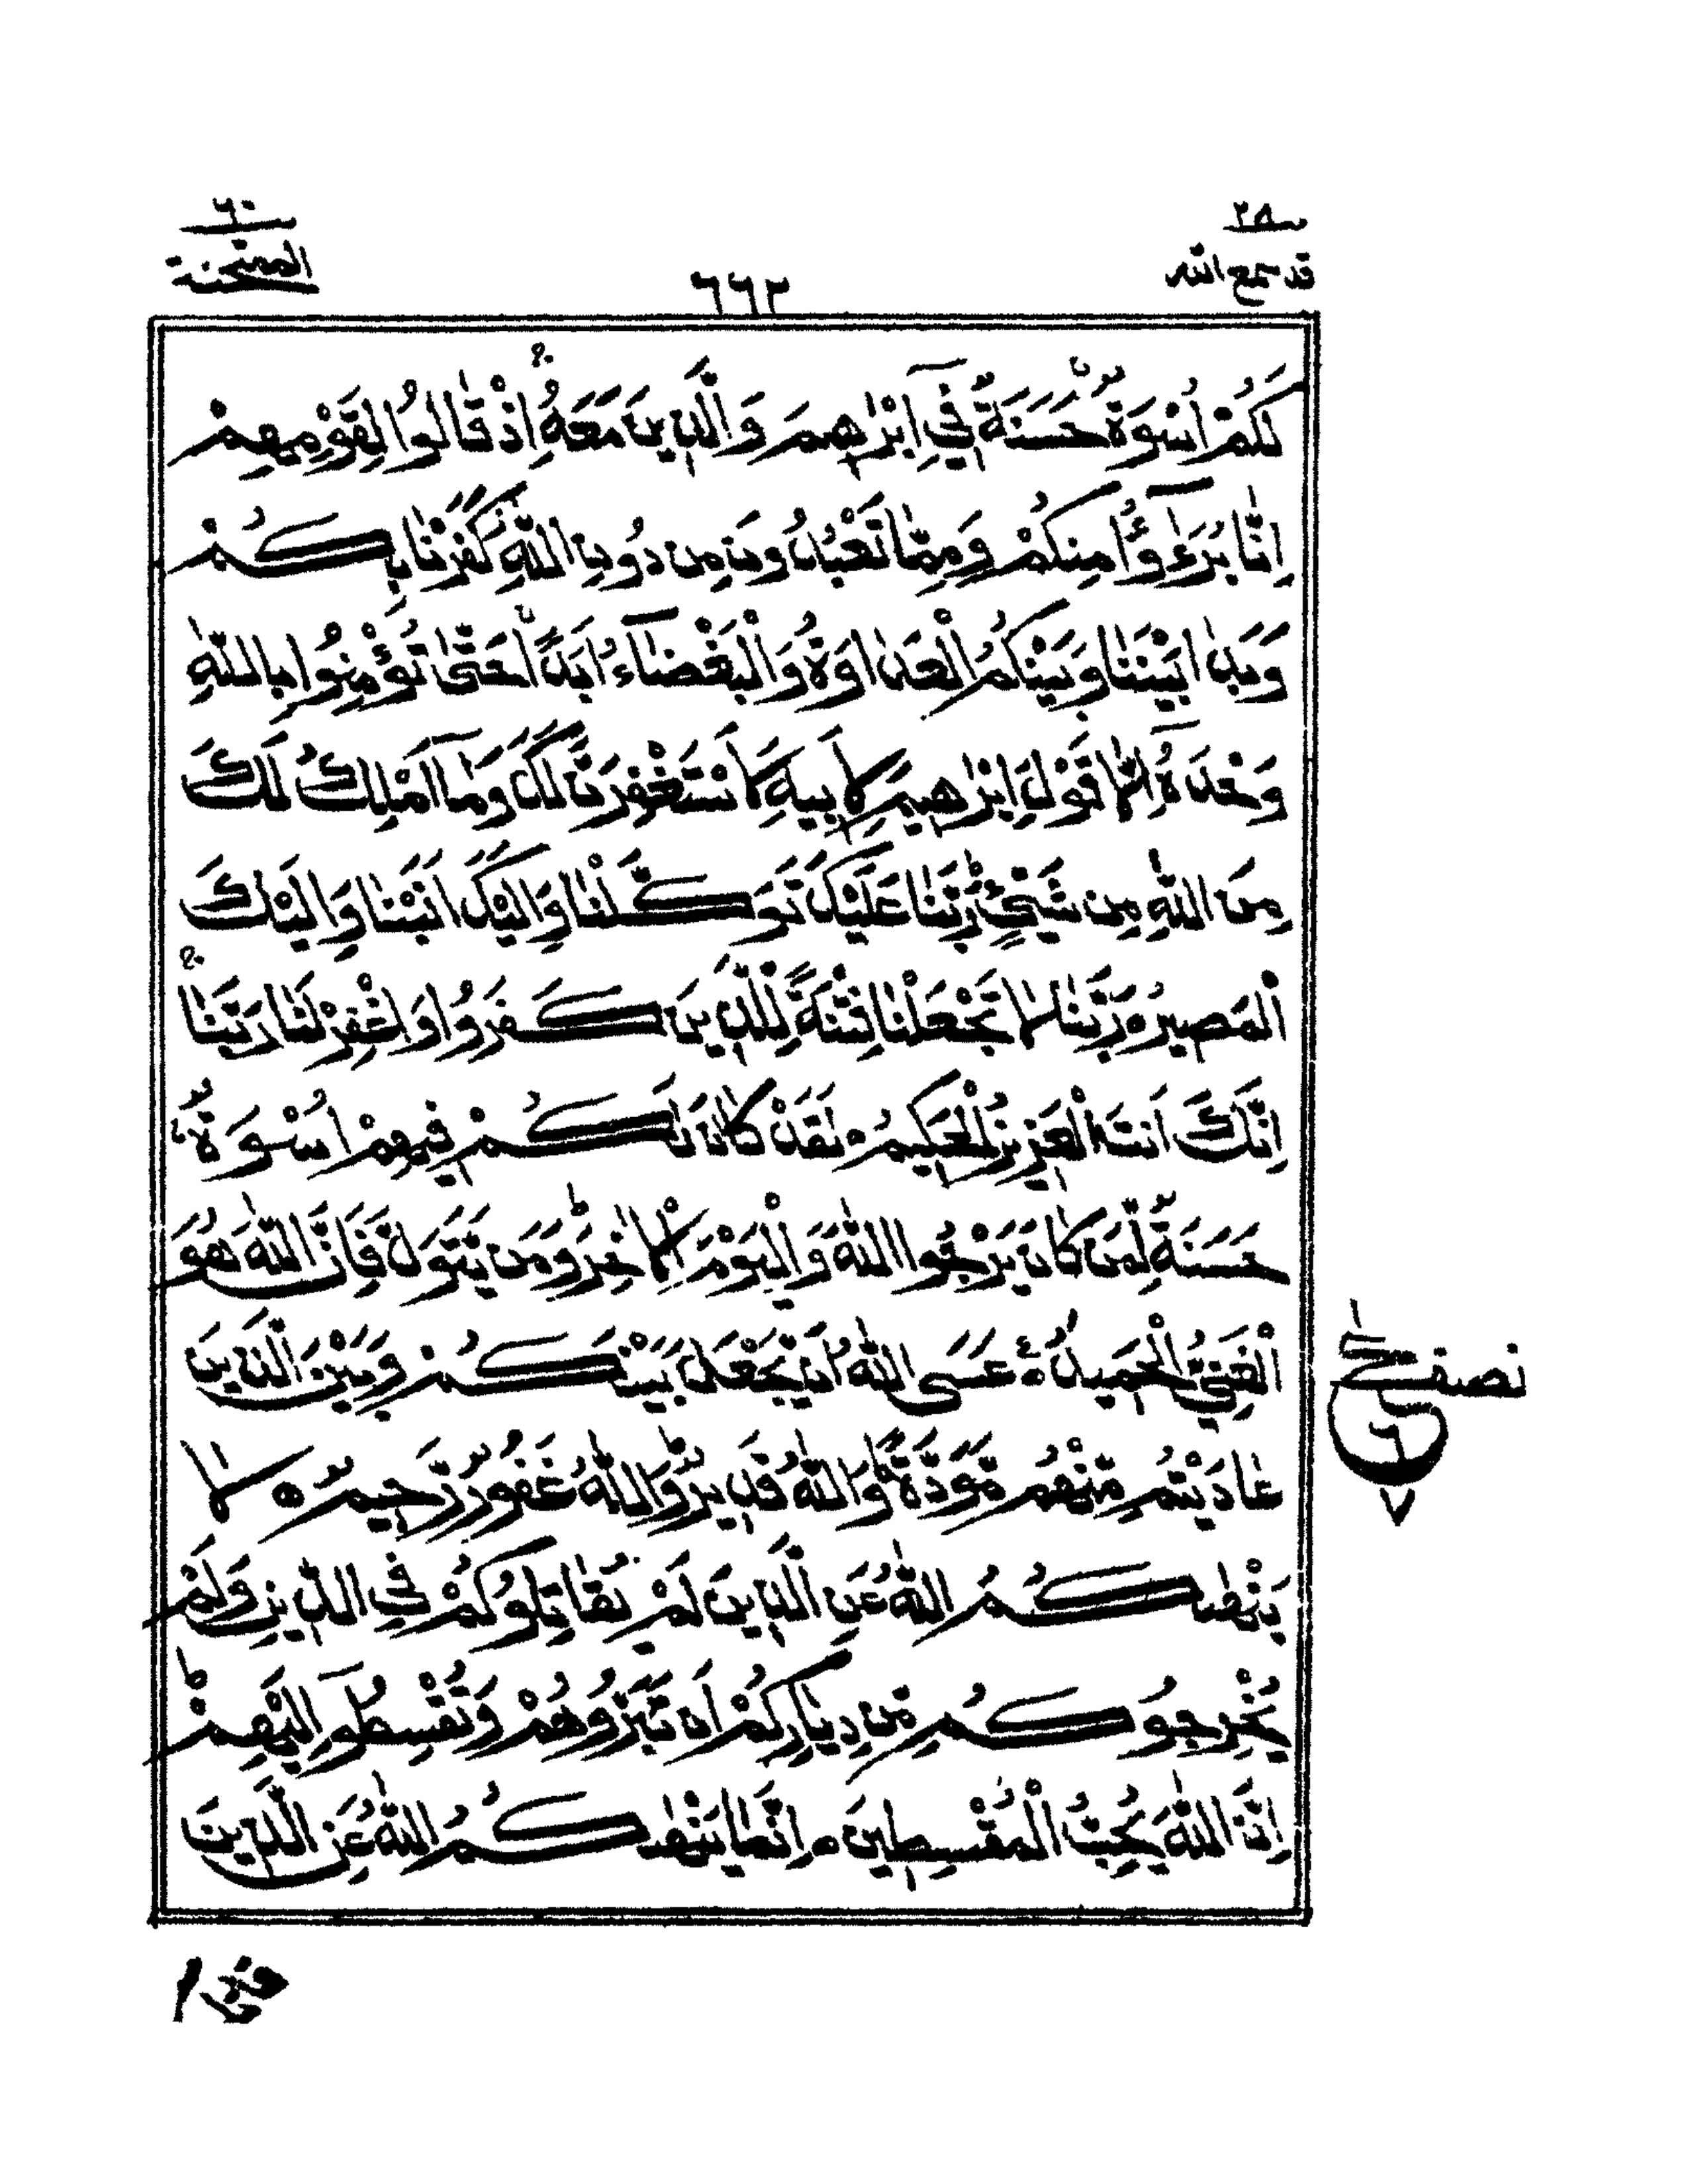 قد سمع الله ٢٨
٦٦٢
الممتحنة ٦٠
لَكُمْ اُسْوَةٌ حَسَنَةٌ فِيْٓ اِبْرٰهِيمَ وَالَّذِينَ مَعَهُ اِذْ قَالُوا لِقَوْمِهِمْ
اِنَّا بُرَءٰٓؤُا مِنكُمْ وَمِمَّا تَعْبُدُونَ مِن دُونِ اللّٰهِ كَفَرْنَا بِكُمْ
وَبَدَا بَيْنَنَا وَبَيْنَكُمُ الْعَدَاوَةُ وَالْبَغْضَآءُ اَبَدًا حَتّٰى تُؤْمِنُوا بِاللّٰهِ
وَحْدَهُٓ اِلَّا قَوْلَ اِبْرٰهِيمَ لِاَبِيهِ لَاَسْتَغْفِرَنَّ لَكَ وَمَآ اَمْلِكُ لَكَ
مِنَ اللّٰهِ مِن شَيْءٍ رَّبَّنَا عَلَيْكَ تَوَكَّلْنَا وَاِلَيْكَ اَنَبْنَا وَاِلَيْكَ
الْمَصِيرُ ه رَبَّنَا لَا تَجْعَلْنَا فِتْنَةً لِّلَّذِينَ كَفَرُوا وَاغْفِرْ لَنَا رَبَّنَا
اِنَّكَ اَنتَ الْعَزِيزُ الْحَكِيمُ ه لَقَدْ كَانَ لَكُمْ فِيهِمْ اُسْوَةٌ
حَسَنَةٌ لِّمَن كَانَ يَرْجُوا اللّٰهَ وَالْيَوْمَ الْاٰخِرَ وَمَن يَّتَوَلَّ فَاِنَّ اللّٰهَ هُوَ
الْغَنِيُّ الْحَمِيدُ ه عَسَى اللّٰهُ اَن يَّجْعَلَ بَيْنَكُمْ وَبَيْنَ الَّذِينَ
عَادَيْتُم مِّنْهُم مَّوَدَّةً وَاللّٰهُ قَدِيرٌ وَاللّٰهُ غَفُورٌ رَّحِيمٌ ه لَا
يَنْهٰىكُمُ اللّٰهُ عَنِ الَّذِينَ لَمْ يُقَاتِلُوكُمْ فِي الدِّينِ وَلَمْ
يُخْرِجُوكُم مِّن دِيَارِكُمْ اَن تَبَرُّوهُمْ وَتُقْسِطُوٓا اِلَيْهِمْ
اِنَّ اللّٰهَ يُحِبُّ الْمُقْسِطِينَ ه اِنَّمَا يَنْهٰىكُمُ اللّٰهُ عَنِ الَّذِينَ
نصف
٦
٧